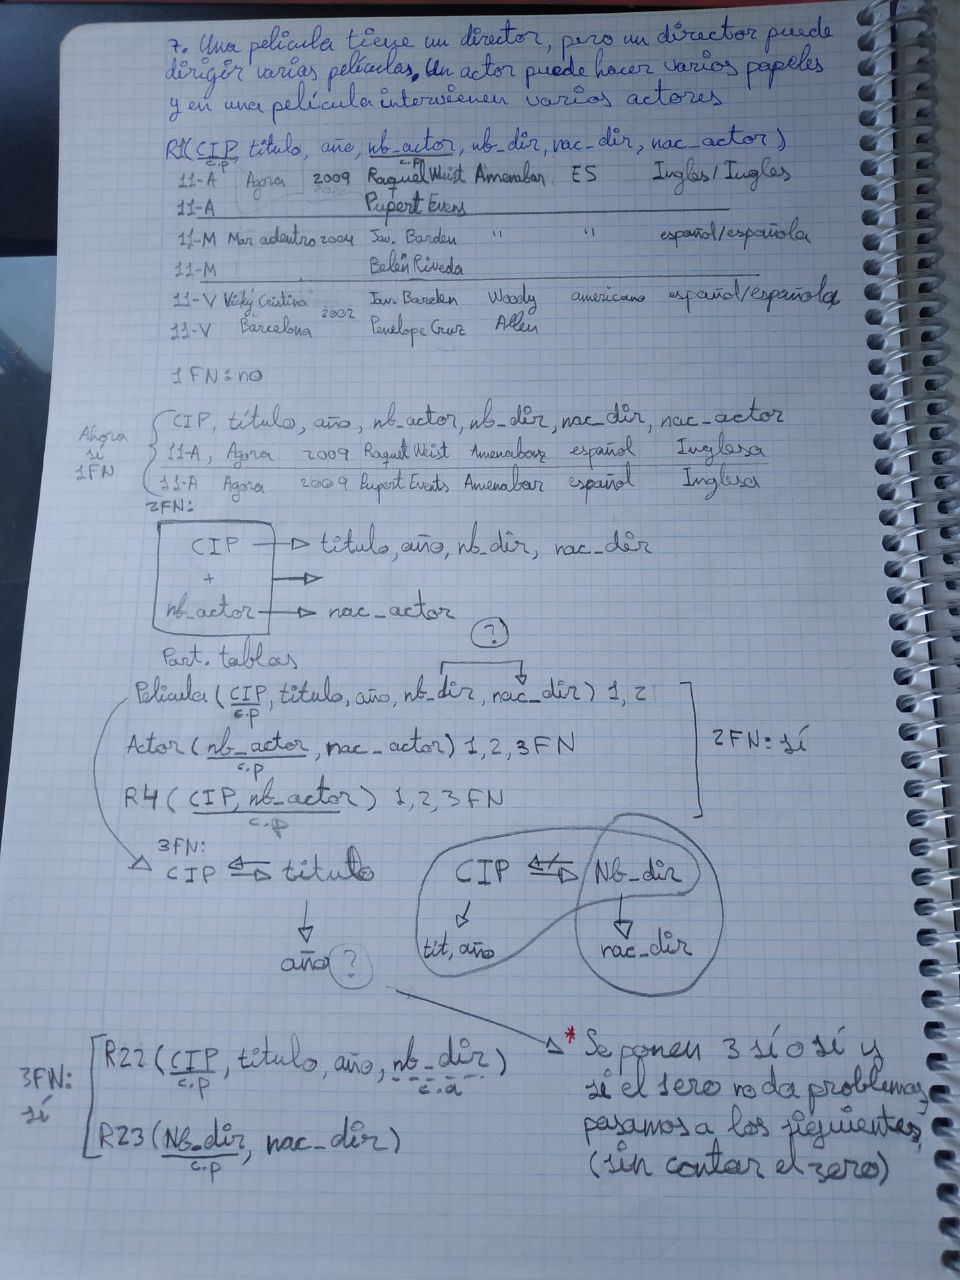 7. Una película tiene un director, pero un director puede
dirigir varias películas, Un actor puede hacer varios papeles
y en una película intervienen varios actores
R1(CIP, título, año, nb_actor, nb_dir, nac_dir, nac_actor)
c.p c.p
11-A Agora 2009 Raquel Weist Amenabar ES Ingles/Ingles
11-A Rupert Evens
11-M Mar adentro 2004 Jav. Barden " " español/española
11-M Belén Riveda
11-V Vicky Cristina 2002 Jav. Barden Woody americano español/española
11-V Barcelona Penelope Cruz Allen
1FN: no
Ahora
sí
1FN
CIP, título, año, nb_actor, nb_dir, nac_dir, nac_actor
11-A, Agora 2009 Raquel Weist Amenabar español Inglesa
11-A Agora 2009 Rupert Events Amenabar español Inglesa
2FN:
CIP → titulo, año, nb_dir, nac_dir
+ →
nb_actor → nac_actor
Part. tablas
?
Película (CIP, titulo, año, nb_dir, nac_dir) 1, 2
c.p
Actor (nb_actor, nac_actor) 1, 2, 3FN
c.p
R4 (CIP, nb_actor) 1, 2, 3FN
c.p
2FN: sí
3FN:
CIP ⇄ titulo
año ?
CIP ⇄ Nb_dir
tit, año nac_dir
3FN:
sí
R22 (CIP, titulo, año, nb_dir)
c.p c.a
R23 (Nb_dir, nac_dir)
c.p
* Se ponen 3 sí o sí y
si el 1ero no da problemas,
pasamos a los siguientes,
(sin contar el zero)